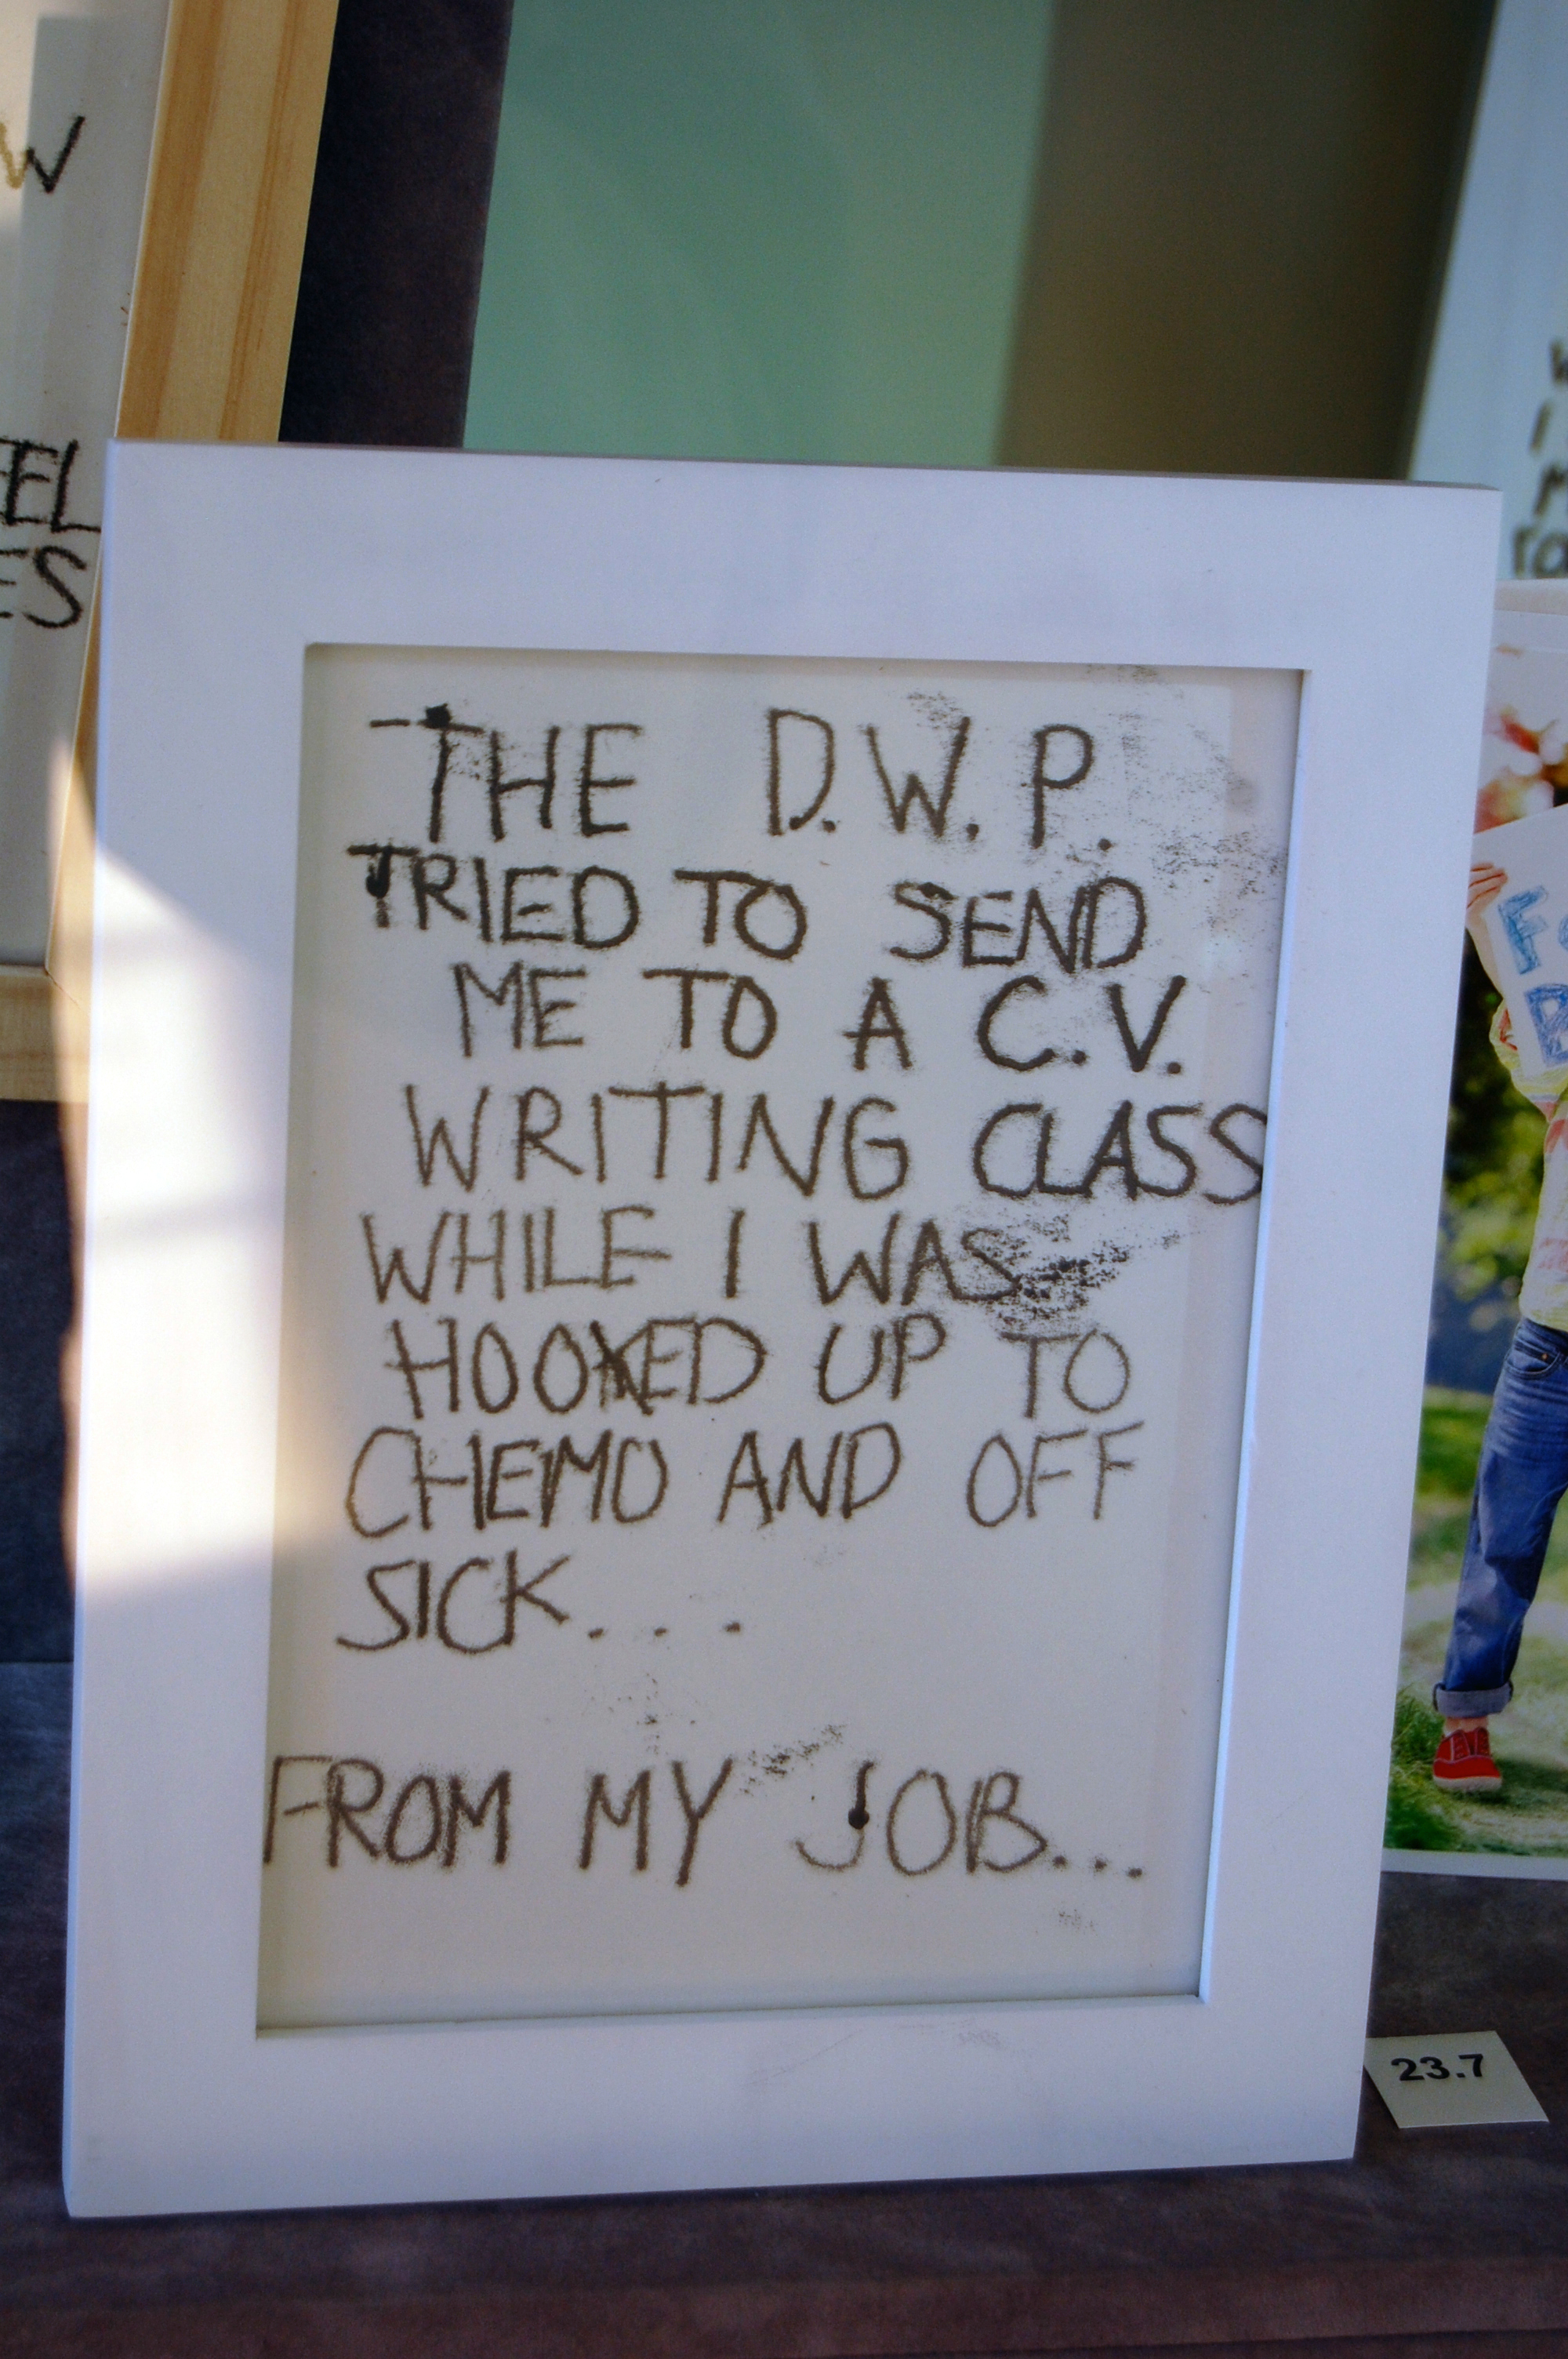 W
THE D.W.P.
TRIED TO SEND
ME TO A C.V.
WRITING CLASS
WHILE I WAS
HOOKED UP TO
CHEMO AND OFF
SICK...
FROM MY JOB...
23.7